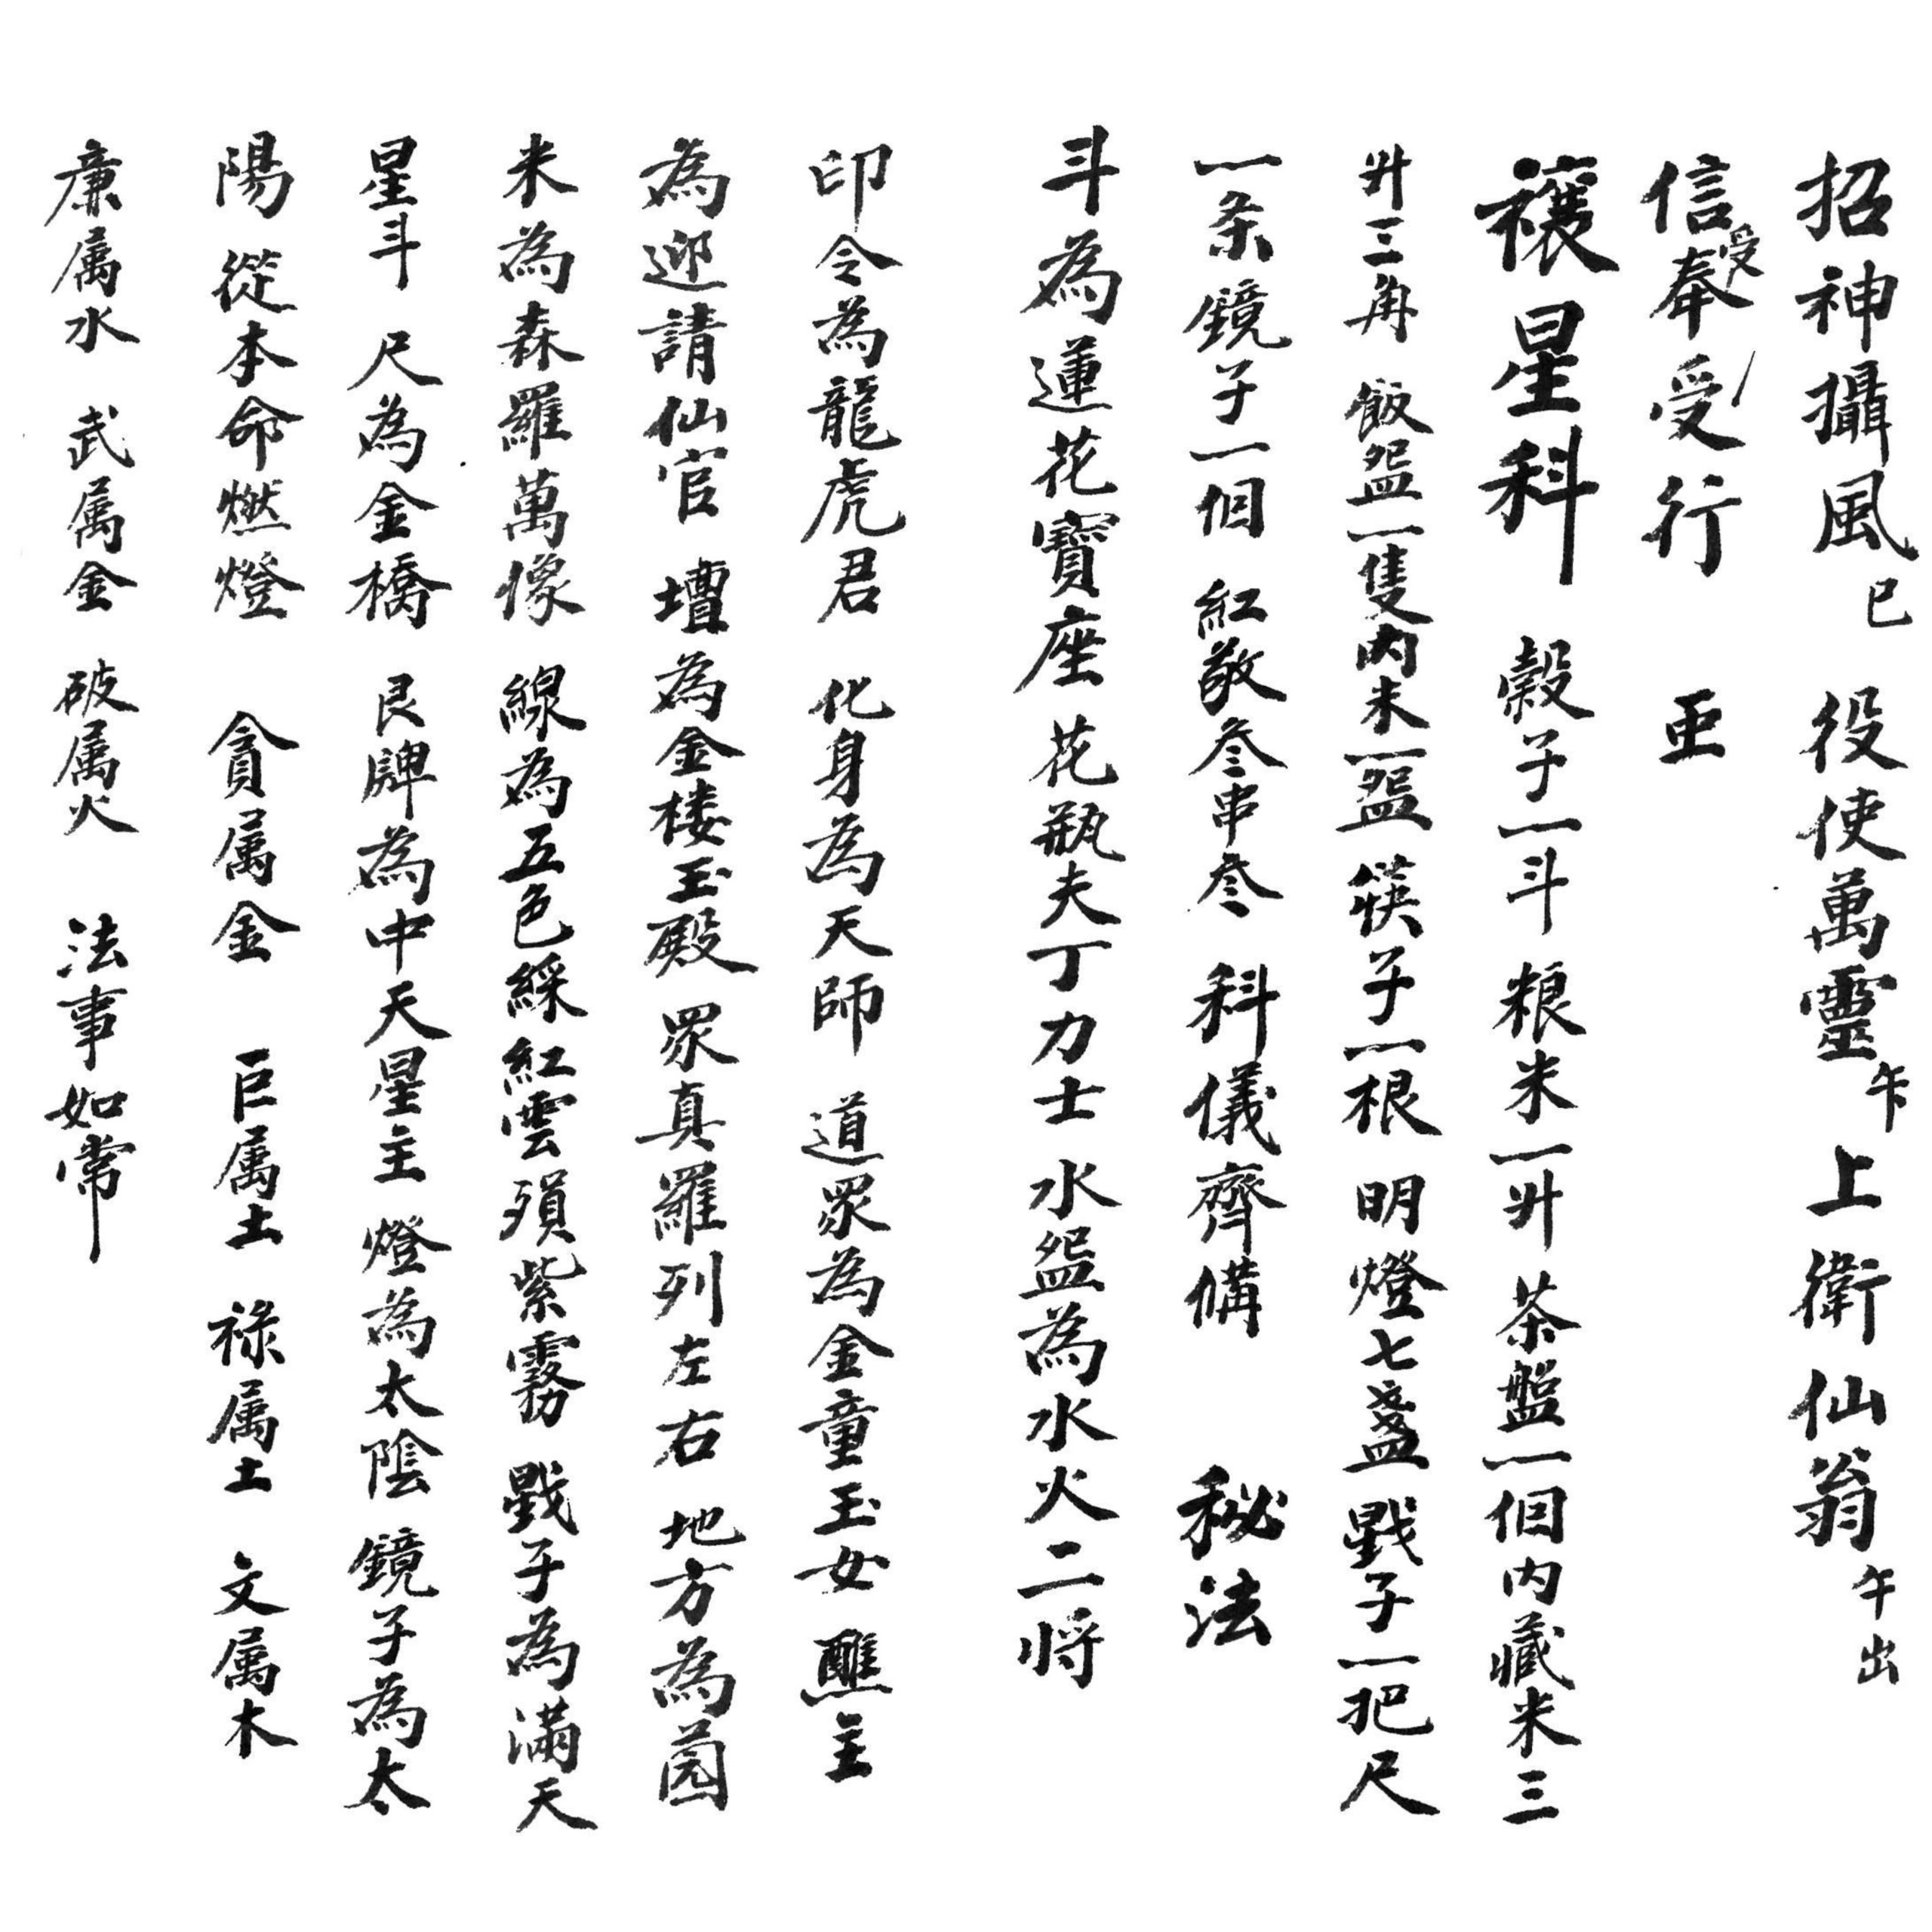 招神攝風巳 役使萬靈午 上衛仙翁午出
信受奉受行 亜
禳星科 穀子一斗 粮米一升 茶盤一個内藏米三
升三角 飯盌一隻内米一盌 筷子一根 明燈七盞 戥子一把 尺
一条 鏡子一個 紅敬叁串叁 科儀齊備 秘法
斗為蓮花寶座 花瓶夫丁力士 水盌為水火二将
印令為龍虎君 化身為天師 道眾為金童玉女 醮主
為迎請仙官 壇為金楼玉殿 眾真羅列左右 地方為园
米為森羅萬像 線為五色綵紅雲 須紫霧 戥子為滿天
星斗 尺為金橋 艮牌為中天星主 燈為太陰 鏡子為太
陽 從本命燃燈 貪属金 巨属土 祿属土 文属木
廉属水 武属金 破属火 法事如常